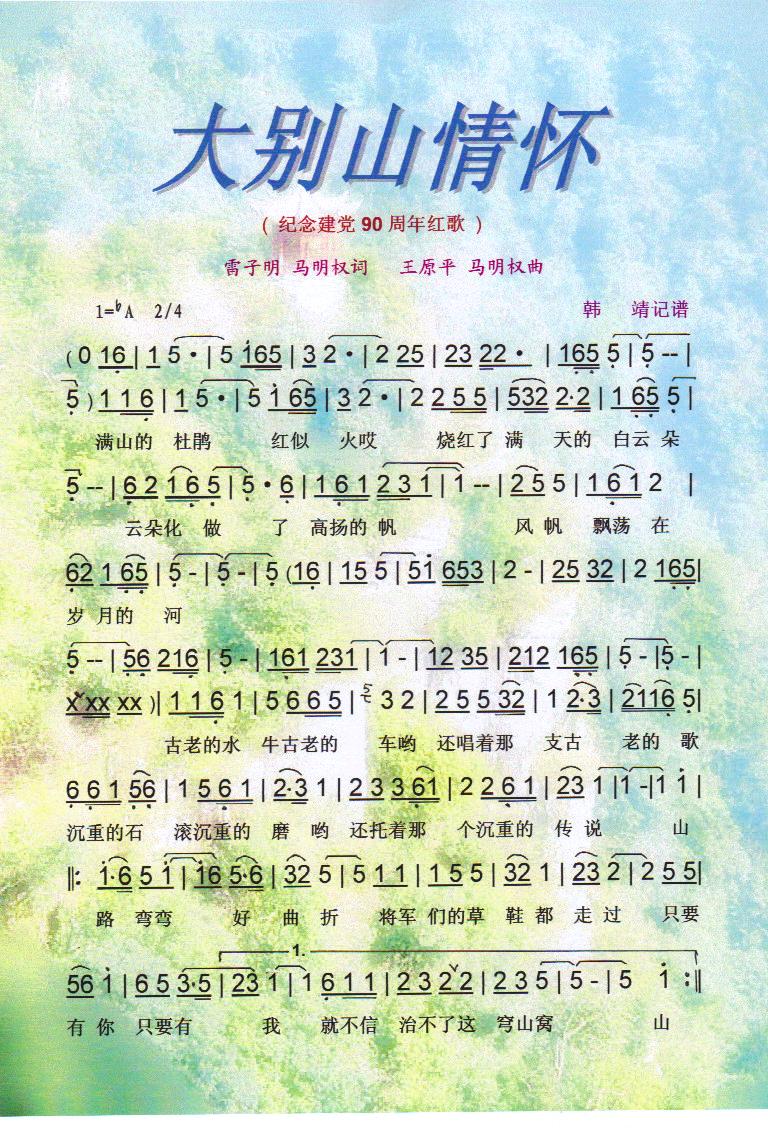 大别山情怀
（ 纪念建党 90 周年红歌 ）
雷子明 马明权词 王原平 马明权曲
1=♭A 2/4 韩 靖记谱
(0 16 | 1 5 · | 5 165 | 3 2 · | 2 25 | 23 22 · | 165 5 | 5 -- |
5 ) 1 1 6 | 1 5 · | 5 1 65 | 3 2 · | 2 2 5 5 | 532 2·2 | 1 65 5 |
满山的 杜鹃 红似 火哎 烧红了 满 天的 白云 朵
5 -- | 6 2 1 6 5 | 5 · 6 | 1 6 1 2 3 1 | 1 -- | 2 5 5 | 1 6 1 2 |
云朵化 做 了 高扬的 帆 风 帆 飘荡 在
62 1 65 | 5 - | 5 - | 5 (16 | 15 5 | 51 653 | 2 - | 25 32 | 2 165 |
岁 月的 河
5 -- | 56 216 | 5 - | 161 231 | 1 - | 12 35 | 212 165 | 5 - | 5 - |
x xx xx ) | 1 1 6 1 | 5 6 6 5 | 3 2 | 2 5 5 32 | 1 2·3 | 2116 5 |
古老的水 牛古老的 车哟 还唱着那 支古 老的 歌
6 6 1 56 | 1 5 6 1 | 2·3 1 | 2 3 3 61 | 2 2 6 1 | 23 1 | 1 - | 1 1 |
沉重的石 滚沉重的 磨 哟 还托着那 个沉重的 传 说 山
‖: 1·6 5 1 | 16 5·6 | 32 5 | 5 1 1 | 1 5 5 | 32 1 | 23 2 | 2 5 5 |
路 弯弯 好 曲 折 将军 们的草 鞋 都 走 过 只要
1.
56 1 | 6 5 3·5 | 23 1 | 1 6 1 1 | 2 3 2 2 | 2 3 5 | 5 - | 5 1 :‖
有 你 只要有 我 就不信 治不了这 穷山窝 山